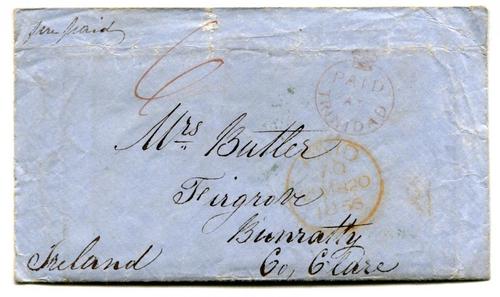 pre paid
6
PAID
AT
TRINIDAD
Mrs Butler
Firgrove
Bunratty
Co, Clare
Ireland